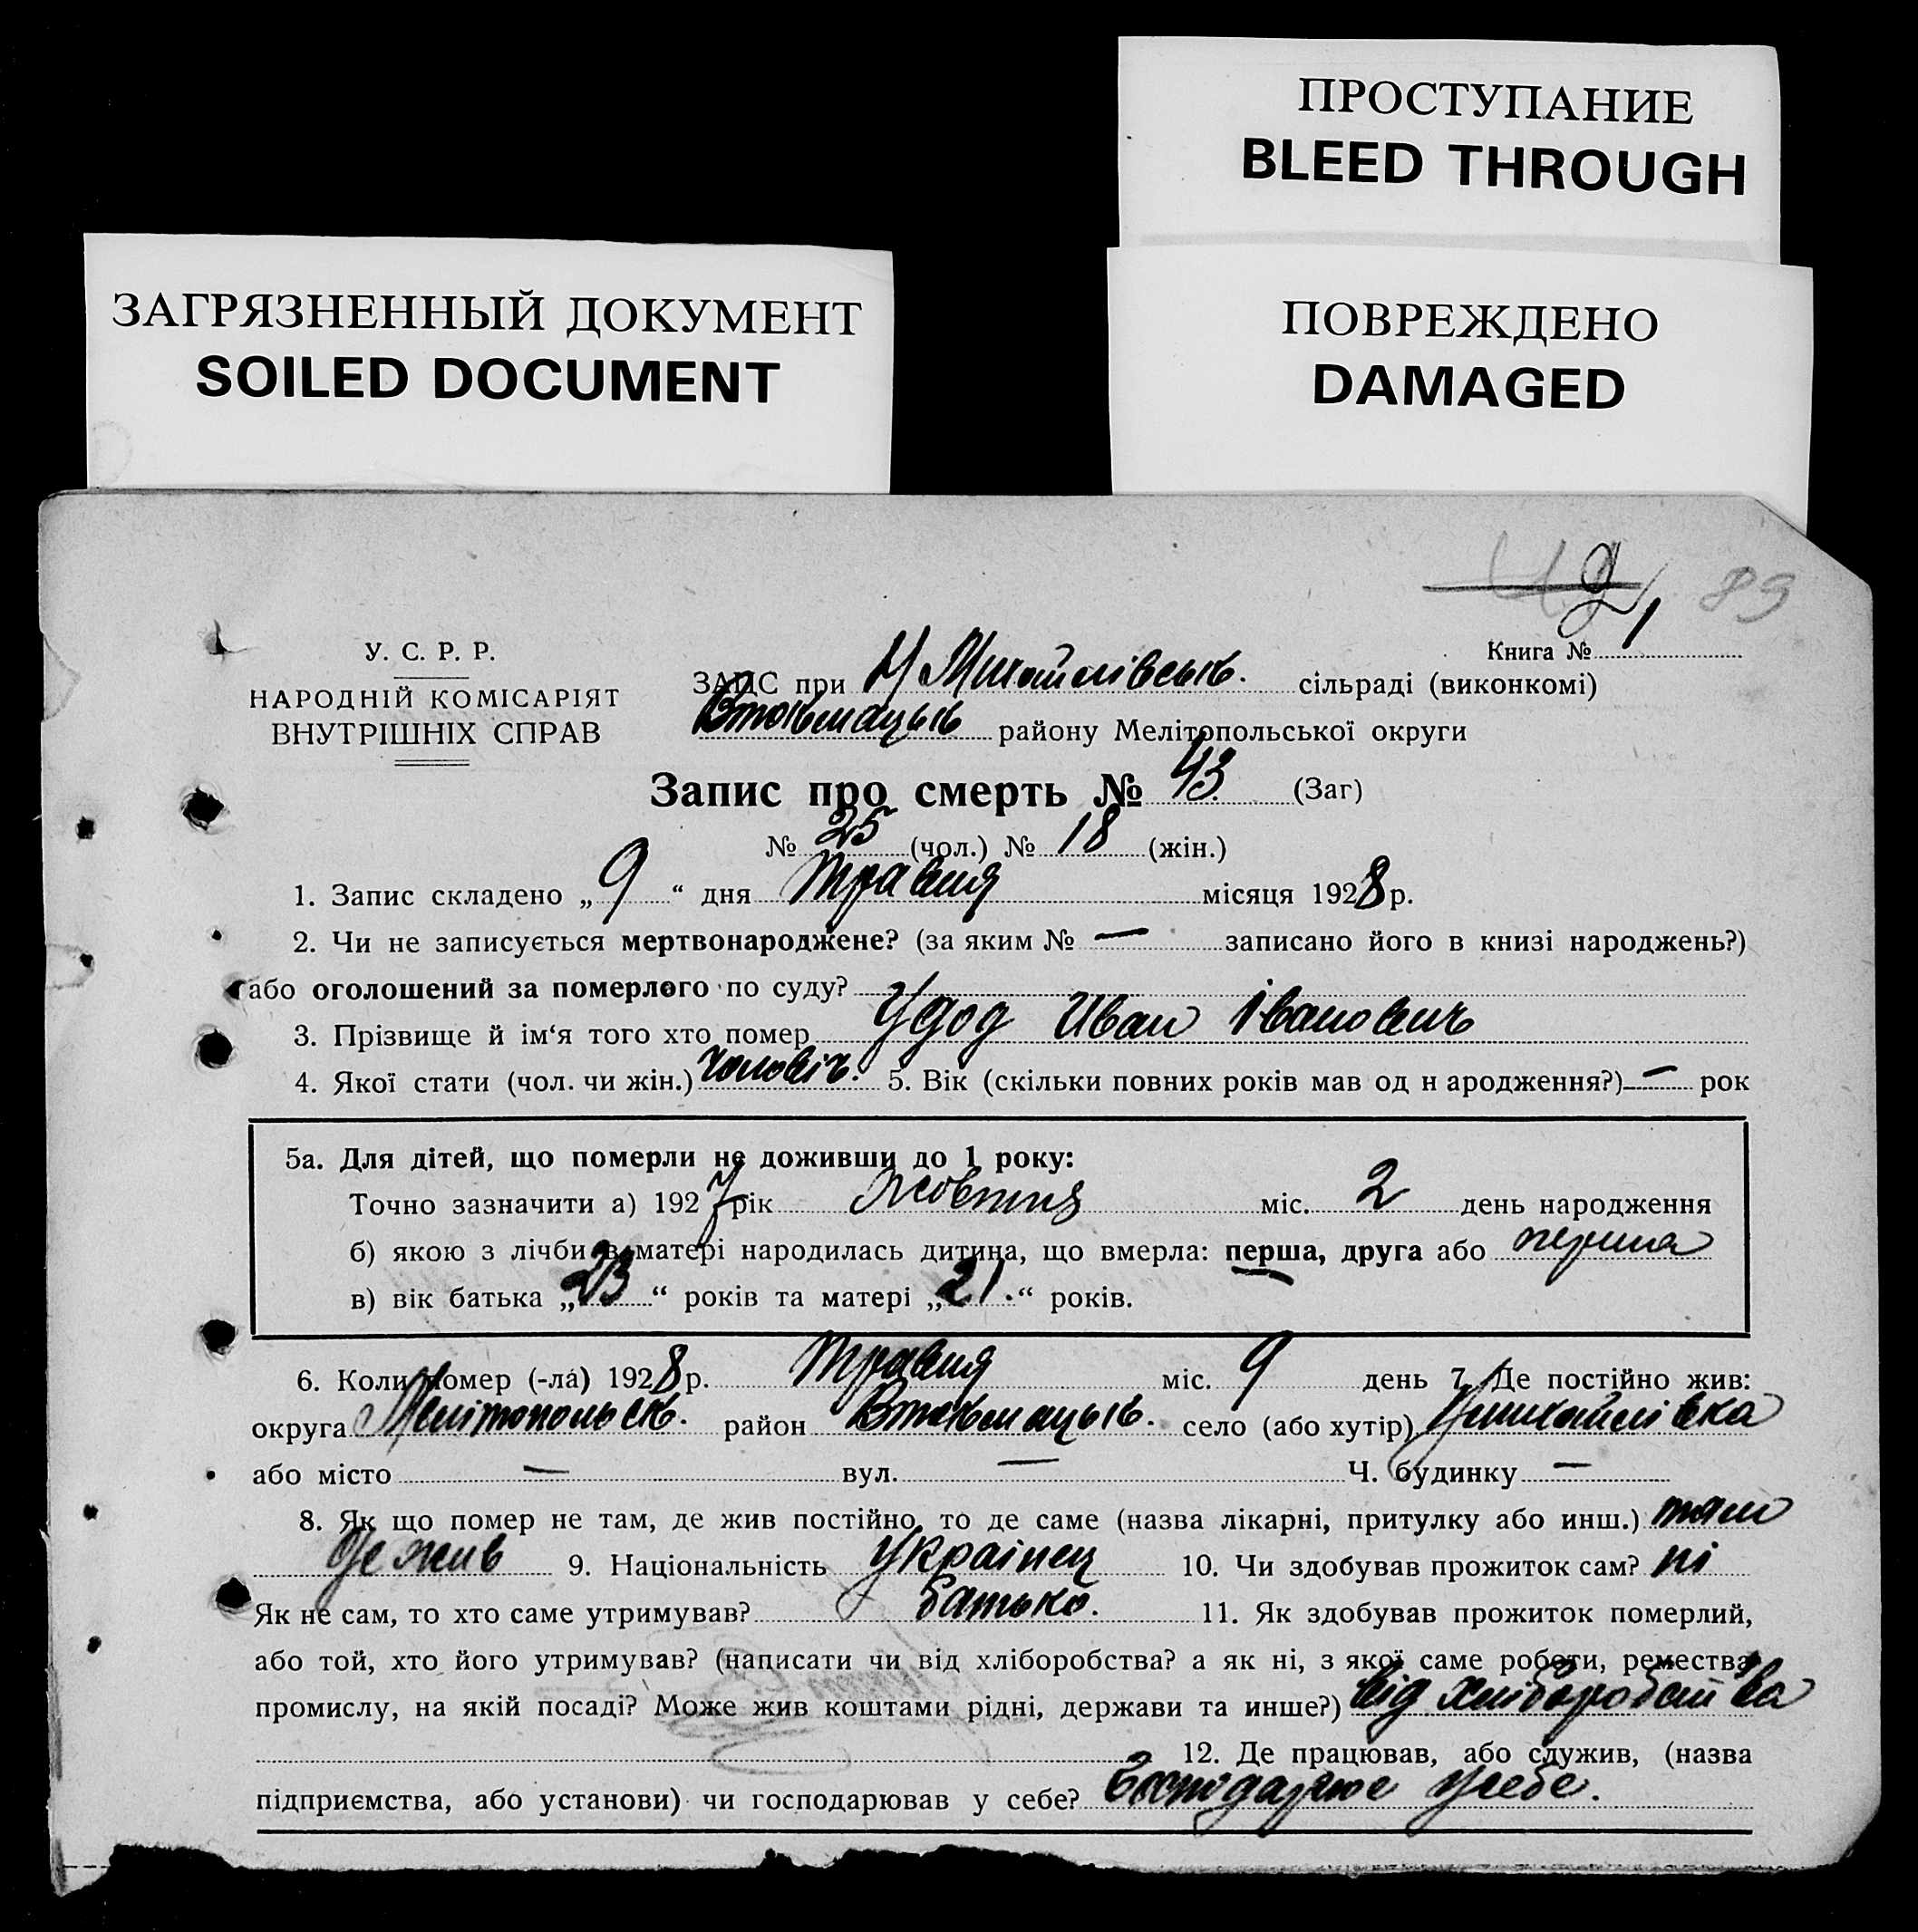 ПРОСТУПАНИЕ
BLEED THROUGH
ЗАГРЯЗНЕННЫЙ ДОКУМЕНТ
SOILED DOCUMENT
ПОВРЕЖДЕНО
DAMAGED
89
Книга № 1
У. С. Р. Р.
НАРОДНІЙ КОМІСАРІЯТ
ВНУТРІШНІХ СПРАВ
ЗАПИС при Михайлівськ. сільраді (виконкомі)
Втокмацьк району Мелітопольської округи
Запис про смерть № 43 (Заг)
№ 25 (чол.) № 18 (жін.)
1. Запис складено „ 9 “ дня травня місяця 1928 р.
2. Чи не записується мертвонароджене? (за яким № — записано його в книзі народжень?)
або оголошений за померлого по суду?
3. Прізвище й ім‘я того хто помер Удод Иван Іванович
4. Якої стати (чол. чи жін.) чоловіч. 5. Вік (скільки повних років мав од н ародження?) — рок
5а. Для дітей, що померли не доживши до 1 року:
Точно зазначити а) 1927 рік Жовтня міс. 2 день народження
б) якою з лічби в матері народилась дитина, що вмерла: перша, друга або перша
в) вік батька „ 23 “ років та матері „ 21. “ років.
6. Коли помер (-ла) 1928 р. травня міс. 9 день 7. Де постійно жив:
округа Мелітопольськ. район Втокмацьк. село (або хутір) Михайлівка
або місто — вул. — Ч. будинку —
8. Як що помер не там, де жив постійно, то де саме (назва лікарні, притулку або инш.) там
де жив 9. Національність Українец 10. Чи здобував прожиток сам? ні
Як не сам, то хто саме утримував? батько. 11. Як здобував прожиток померлий,
або той, хто його утримував? (написати чи від хліборобства? а як ні, з якої саме роботи, ремества,
промислу, на якій посаді? Може жив коштами рідні, держави та инше?) від хліборобства
12. Де працював, або служив, (назва
підприємства, або установи) чи господарював у себе? Господарює у себе.